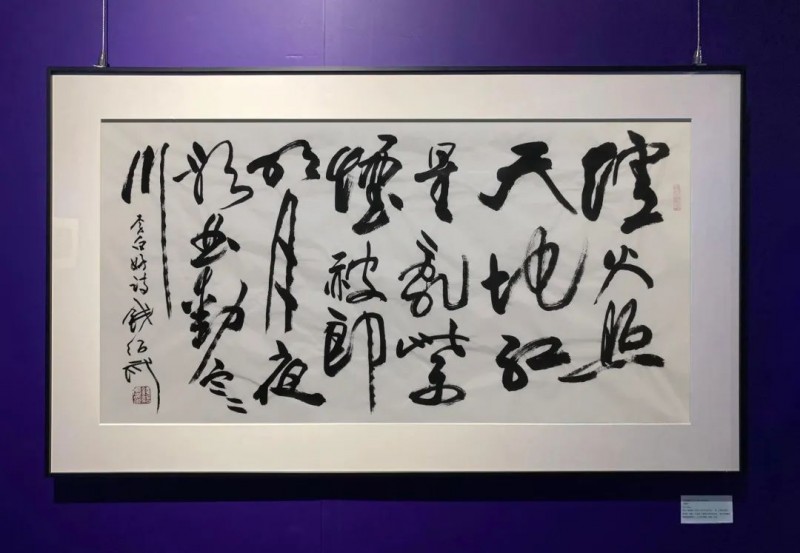 爐火照
天地紅
星亂紫
煙赧郎
明月夜
歌曲動寒
川
李白好詩 錢紹武